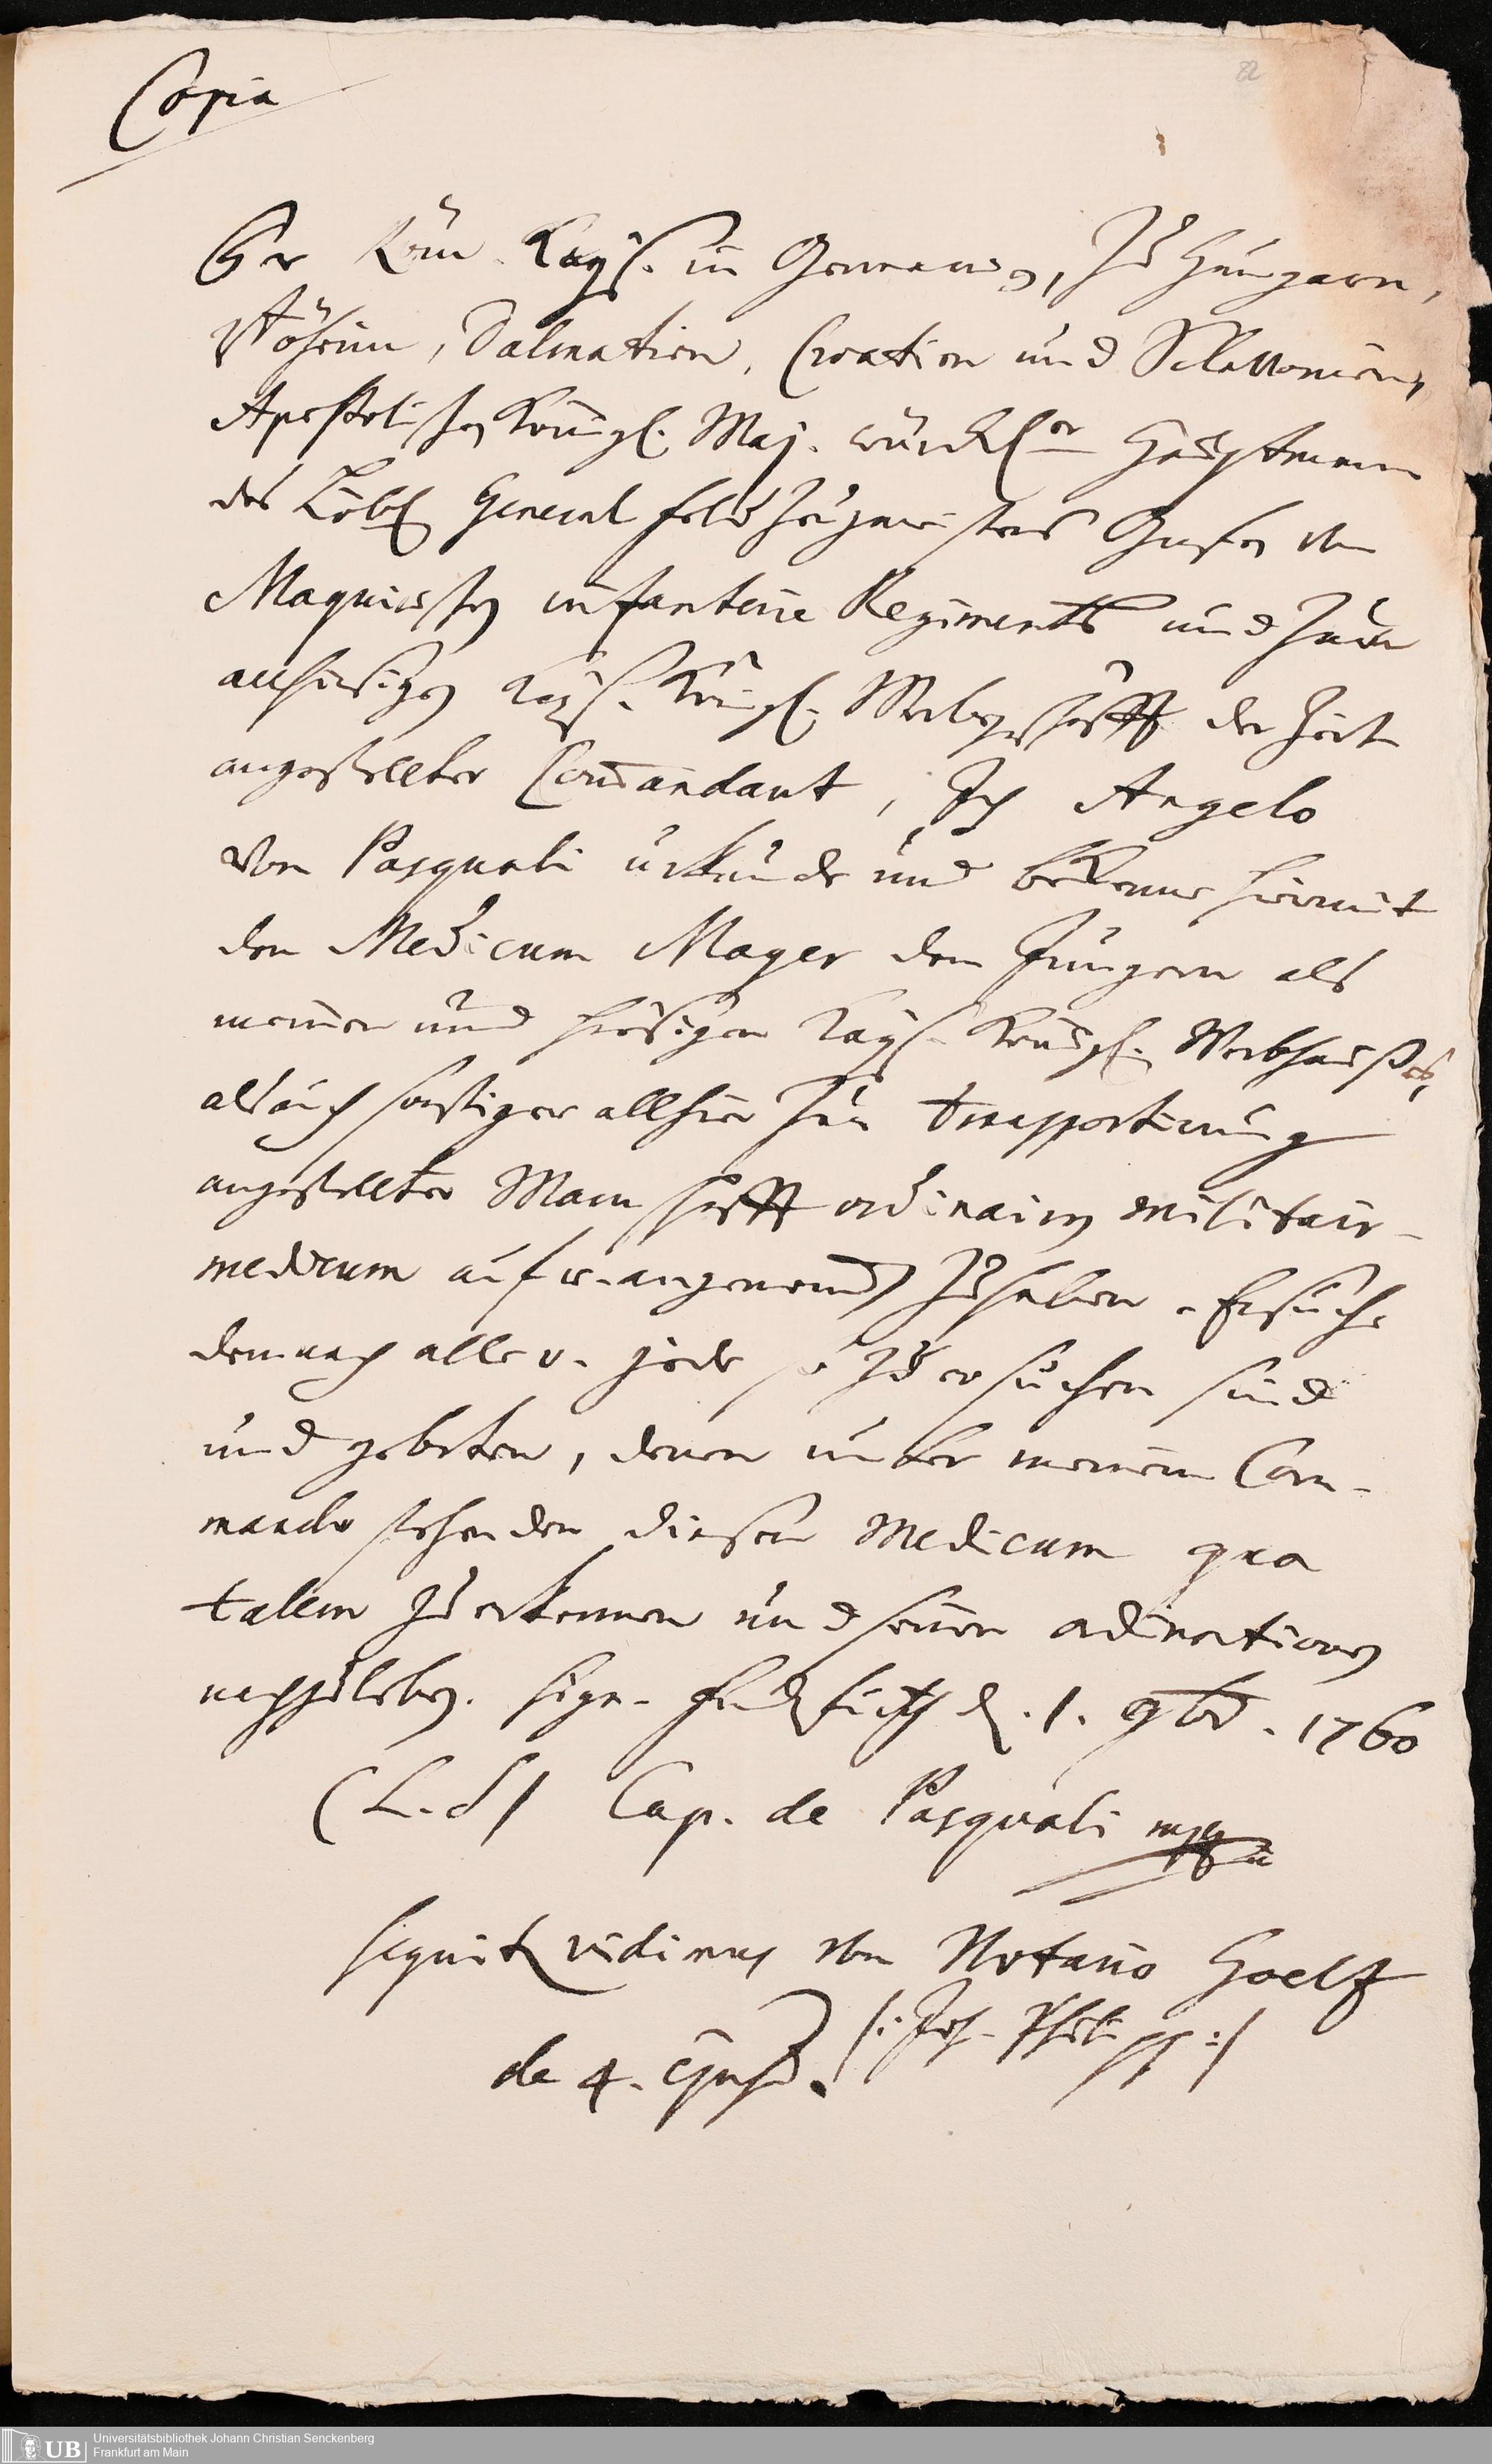 Copia
22
Er Röm. Kayß. in Germanien, zu Hungarn,
Böheim, Dalmatien, Croatien und Sclavonien,
Apostolischen Königl. Maj. würckl.er Hauptmann
des Löbl. General Feldzeugmeisters Grafen von
Maquirischen infanterie Regiments und zum
allhiesigen Kayß. Königl. Werbgeschäfft der Zeit
angestellter Com̄andant, Ich Angelo
von Pasquali urkunde und bekenne hiermit
den Medicum Mayer den Jüngern als
meinen und hiesigen Kayß. Königl. Werbhaußes,
als auch sonstiger allhier zur transportirung
angestellter Mannschafft ordinairen militair-
medicum auf u. angenom̄en zu haben. Ersuche
demnach alle u. jede so zu ersuchen sind
und gebiete, denen unter meinem Com-
mando stehenden diesen Medicum qua
talem zu erkennen und seinen ordinationen
nachzuleben. Sign. Franckfurth d. 1. 9br. 1760
(L.S) Cap. de Pasquali mppria
sequitur vidimus von Notario Hoelz
de 4. ejusd. /: Joh. Philipp :/
Universitätsbibliothek Johann Christian Senckenberg
Frankfurt am Main
UB